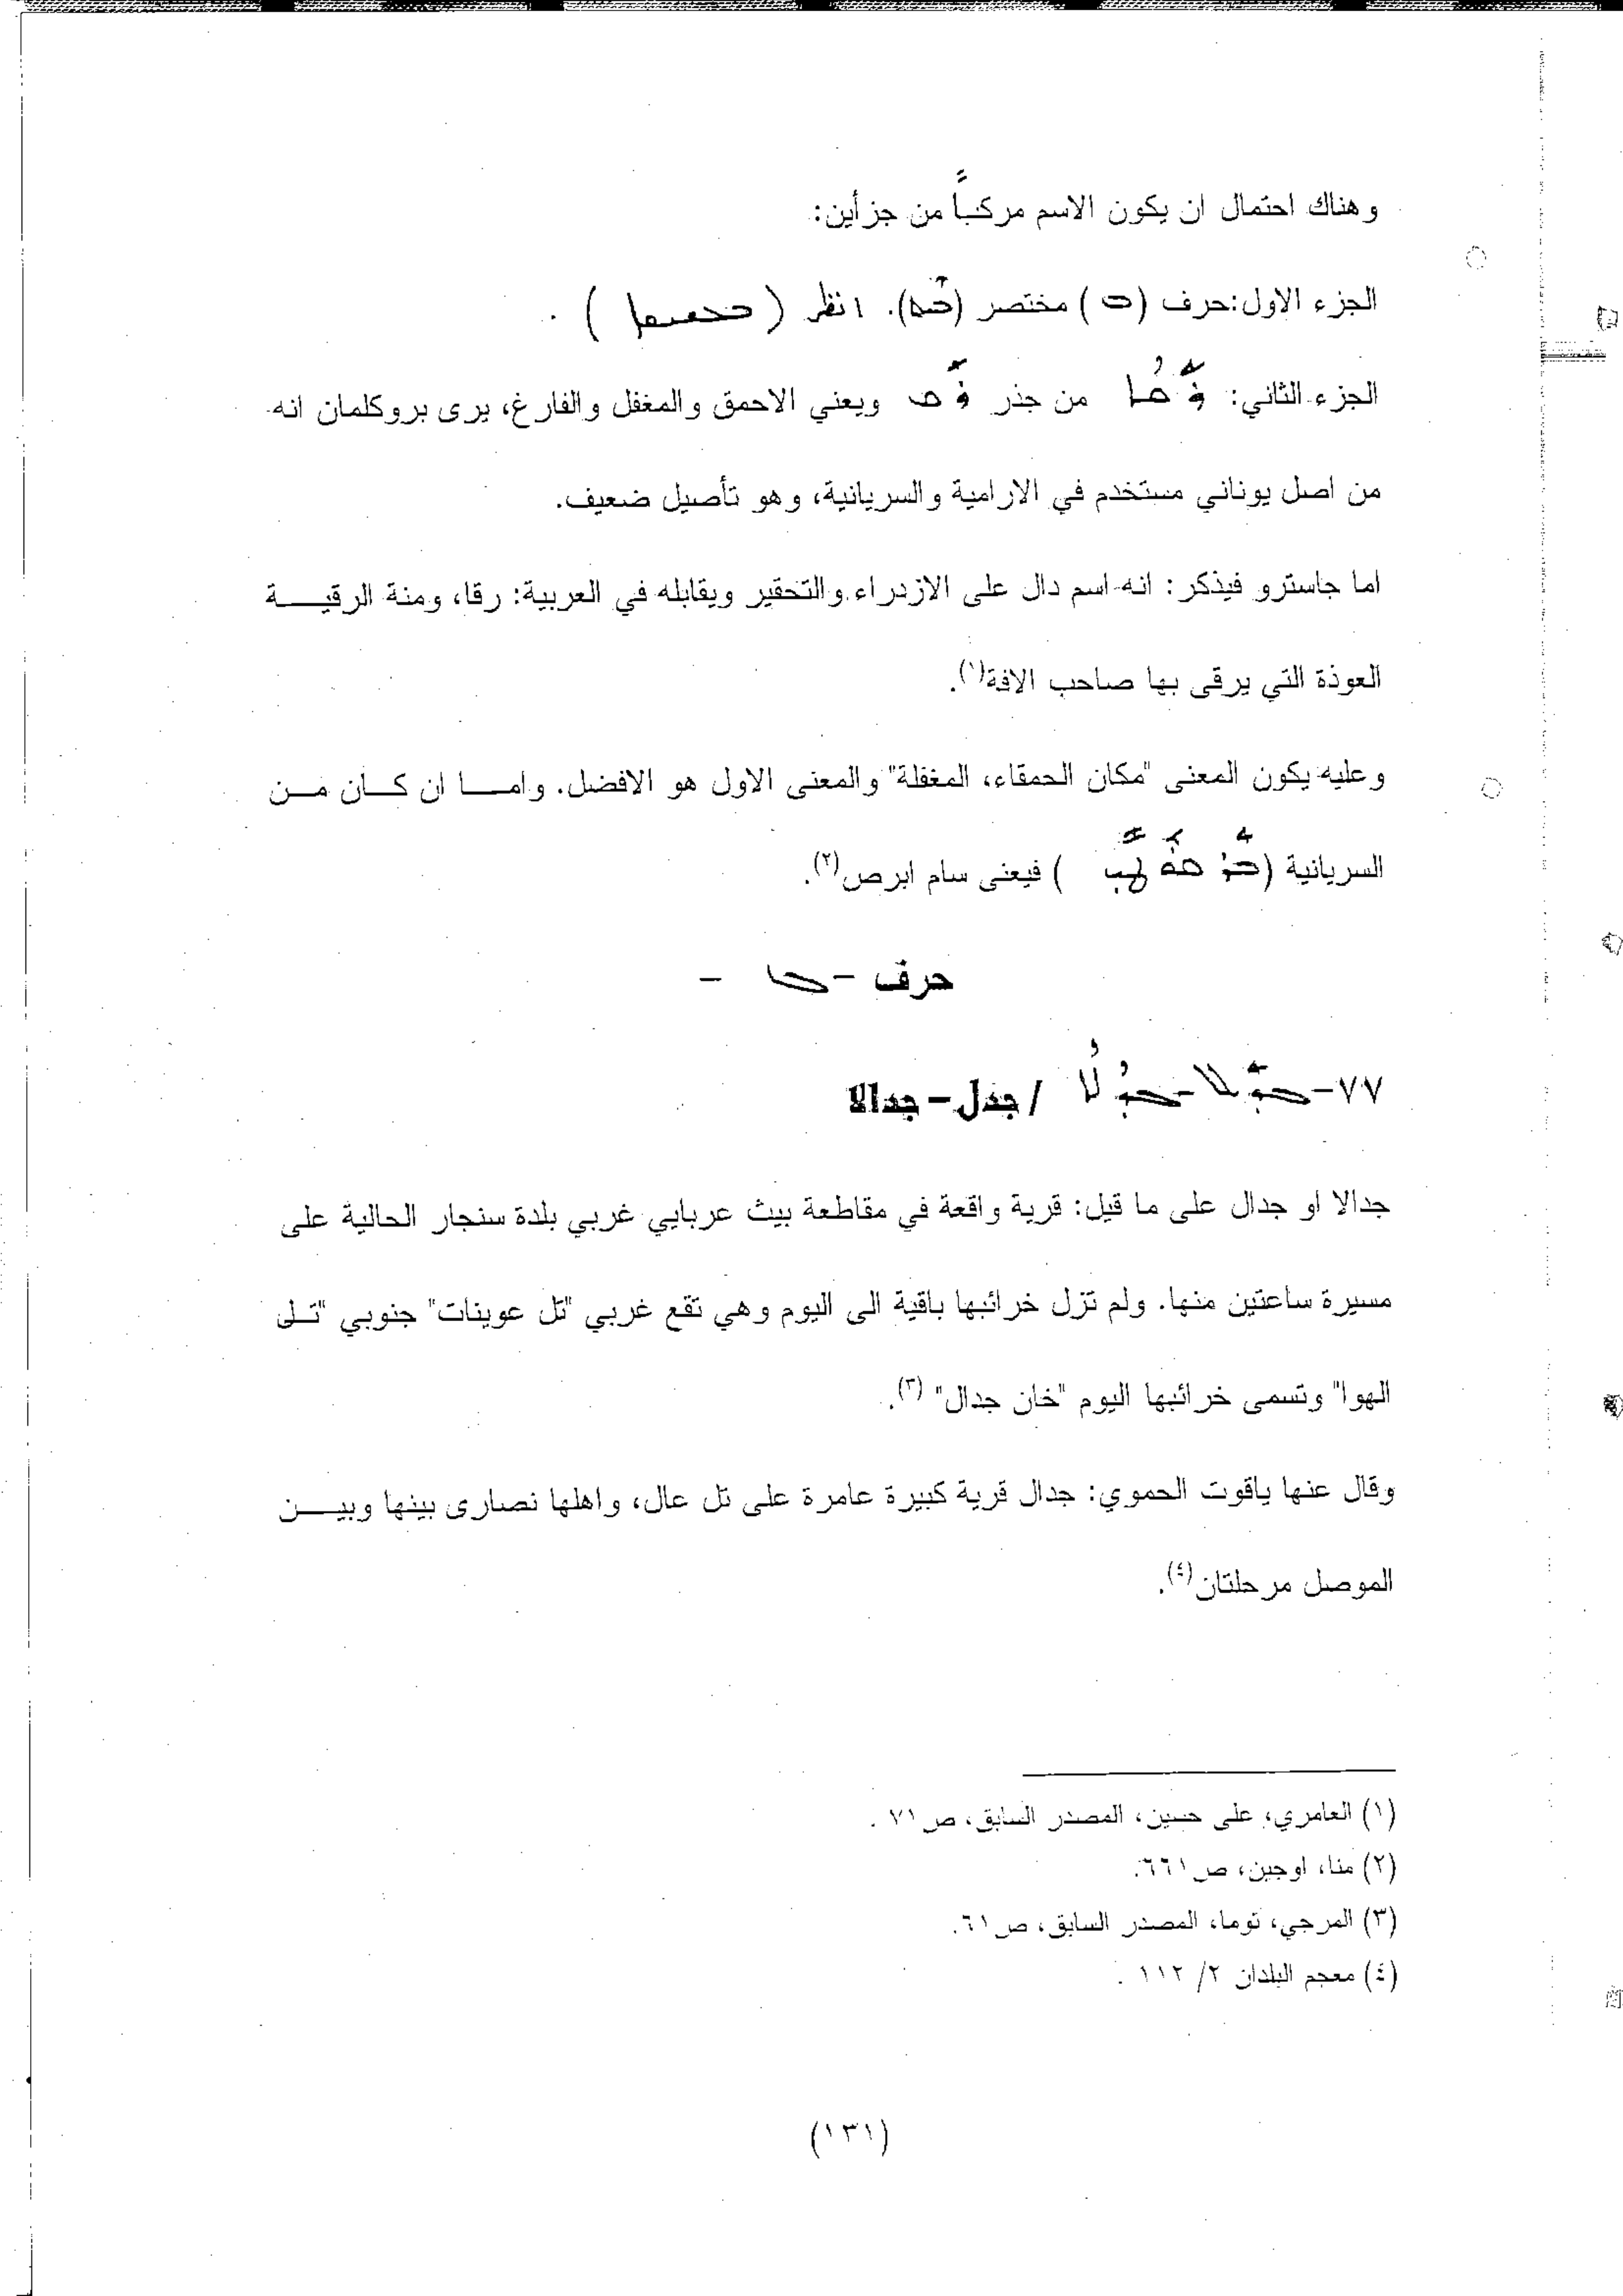 وهناك احتمال ان يكون الاسم مركباً من جزأين:
الجزء الاول:حرف (ܒ) مختصر (). انظر () .
الجزء الثاني: ܪܩܐ من جذر ܪܩ ويعني الاحمق والمغفل والفارغ، يرى بروكلمان انه
من اصل يوناني مستخدم في الارامية والسريانية، وهو تأصيل ضعيف.
اما جاسترو فيذكر: انه اسم دال على الازدراء والتحقير ويقابله في العربية: رقا، ومنة الرقيـــة
العوذة التي يرقى بها صاحب الافة(١).
وعليه يكون المعنى "مكان الحمقاء، المغفلة" والمعنى الاول هو الافضل. وامـــا ان كـــان مـــن
السريانية () فيعنى سام ابرص(٢).
حرف - ܓ -
٧٧- ܓܕܠ-ܓܕܠܐ / جدل-جدالا
جدالا او جدال على ما قيل: قرية واقعة في مقاطعة بيث عربايي غربي بلدة سنجار الحالية على
مسيرة ساعتين منها. ولم تزل خرائبها باقية الى اليوم وهي تقع غربي "تل عوينات" جنوبي "تـلى
الهوا" وتسمى خرائبها اليوم "خان جدال" (٣).
وقال عنها ياقوت الحموي: جدال قرية كبيرة عامرة على تل عال، واهلها نصارى بينها وبيـــن
الموصل مرحلتان(٤).
(١) العامري، على حسين، المصدر السابق، ص٧١ .
(٢) منا، اوجين، ص٦٦١.
(٣) المرجي، توما، المصدر السابق، ص٦١.
(٤) معجم البلدان ٢/ ١١٢ .
(١٣١)